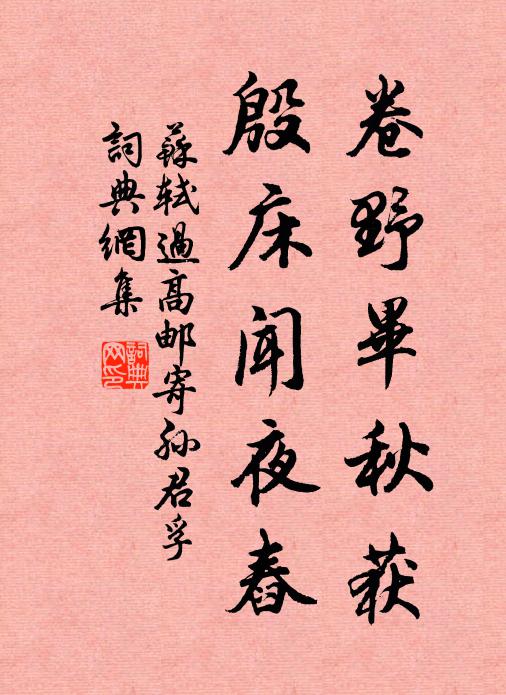 卷野畢秋获
殷床闻夜舂
蘇轼過高邮寄孙君孚
詞典網集
詞典网印